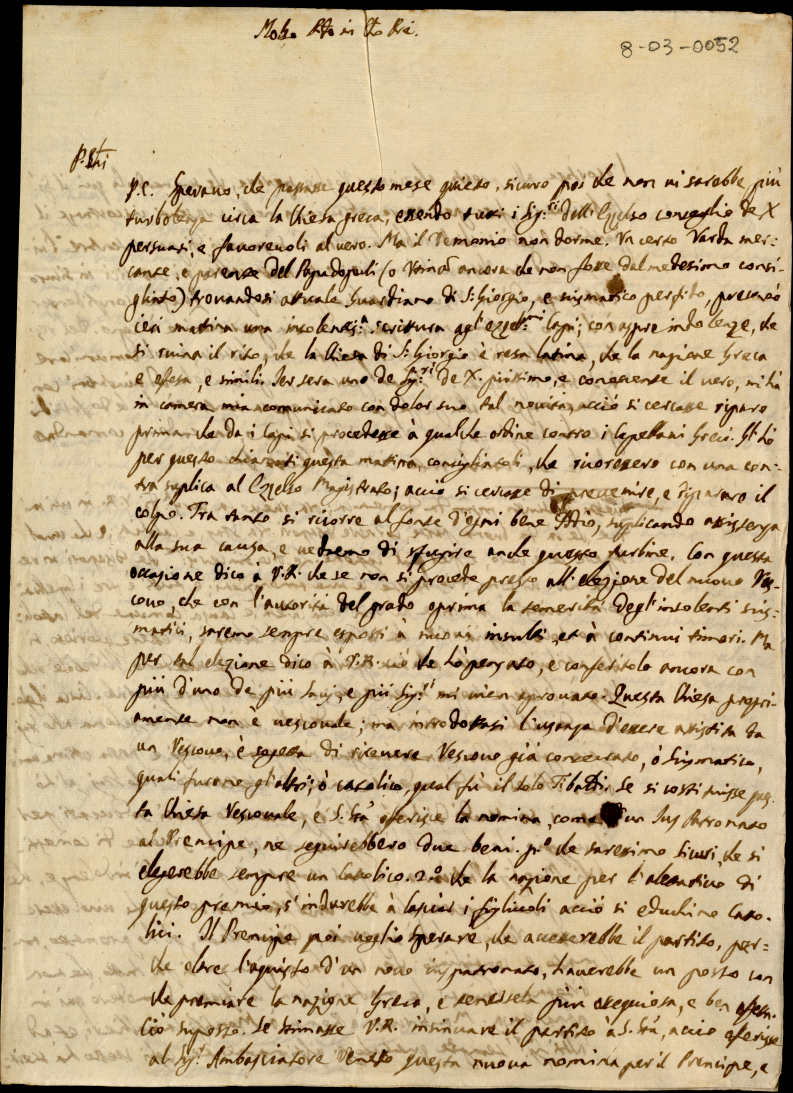 Molto Rdo in Cto Pre.
8-03-0052
P. Chi
P.C. Speravo, che passasse questo mese quieto, sicuro poi che non vi sarebbe più
turbolenza circa la Chiesa greca, essendo tutti i Sig.ri dell'Eccelso conseglio de X
persuasi, e favorevoli al vero. Ma il Demonio non dorme. Un certo Varda mer-
cante, e parente del Papadopoli (o ancora che non fosse dal medesimo consi-
gliato) trovandosi attuale Guardiano di S: Giorgio, e sismatico perfido, presentò
ieri mattina una insolentis.a scrittura agl'eccel.mi Capi; con aspre indolenze, che
si ruina il rito, che la Chiesa di S: Giorgio è resa latina, che la nazione Greca
è offesa, e simili. Ier sera uno de Sig.ri de X. piissimo, e conoscente il vero, mi hà
in camera mia comunicato con dolor suo tal novità, acciò si cercasse riparo
prima che da i Capi si procedesse à qualche ordine contro i Capellani Greci. Gl'hò
per questo chiamati questa mattina, consigliatoli, che ricorressero con una con-
tra suplica al Eccelso Magistrato; acciò si cercasse di prevenire, e riparare il
colpo. Tra tanto si ricorre al fonte d'ogni bene Iddio, suplicando assistenza
alla sua causa, e vedremo di sfugire anche questo turbine. Con questa
occasione dico à V.R. che se non si procede presto all'elezione del nuovo Ves-
covo, che con l'autorità del grado oprima la temerità degl'insolenti sis-
matici, saremo sempre esposti à nuovi insulti, et à continui timori. Ma
per tal elezione dico à V.R. ciò che hò pensato, e conferitolo ancora con
più d'uno de più Savj, e più Sig.ri mi vien aprovato. Questa Chiesa propri-
amente non è vescovale; ma introdottasi l'usanza d'essere assistita da
un Vescovo, è soggetta di ricevere Vescovo già consecrato, ò Sismatico,
quali furono gl'altri; ò catolico, qual fù il solo Tibaldi. Se si costituisse ques-
ta Chiesa Vescovale, e S. Stà offerisse la nomina, come d'un Jus Patronato
al Prencipe, ne seguirebbero due beni. p.o che saressimo sicuri, che si
elegerebbe sempre un Catolico. 2.o che la nazione per l'aleattivo di
questo premio, s'indurebbe à lasciar i figliuoli acciò si educhino Cato-
lici. Il Prencipe poi voglio sperare, che accetterebbe il partito, per=
che oltre l'aquisto d'un novo juspatronato, haverebbe un posto con
che premiare la nazione Greca, e rendersela più ossequiosa, e ben affetta.
Ciò suposto. Se stimasse V.R. insinuare il partito à S. Stà, acciò offerisse
al Sig.r Ambasciatore Veneto questa nuova nomina per il Prencipe, e